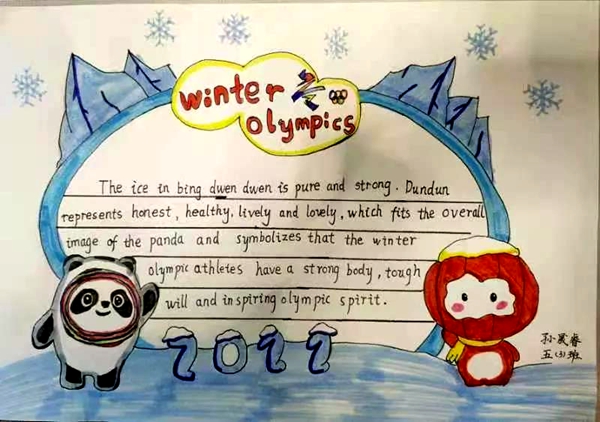 Winter
Olympics
The ice in bing dwen dwen is pure and strong. Dundun
represents honest, healthy, lively and lovely, which fits the overall
image of the panda and symbolizes that the winter
olympic athletes have a strong body, tough
will and inspiring olympic spirit.
2022
孙晨睿
五(3)班